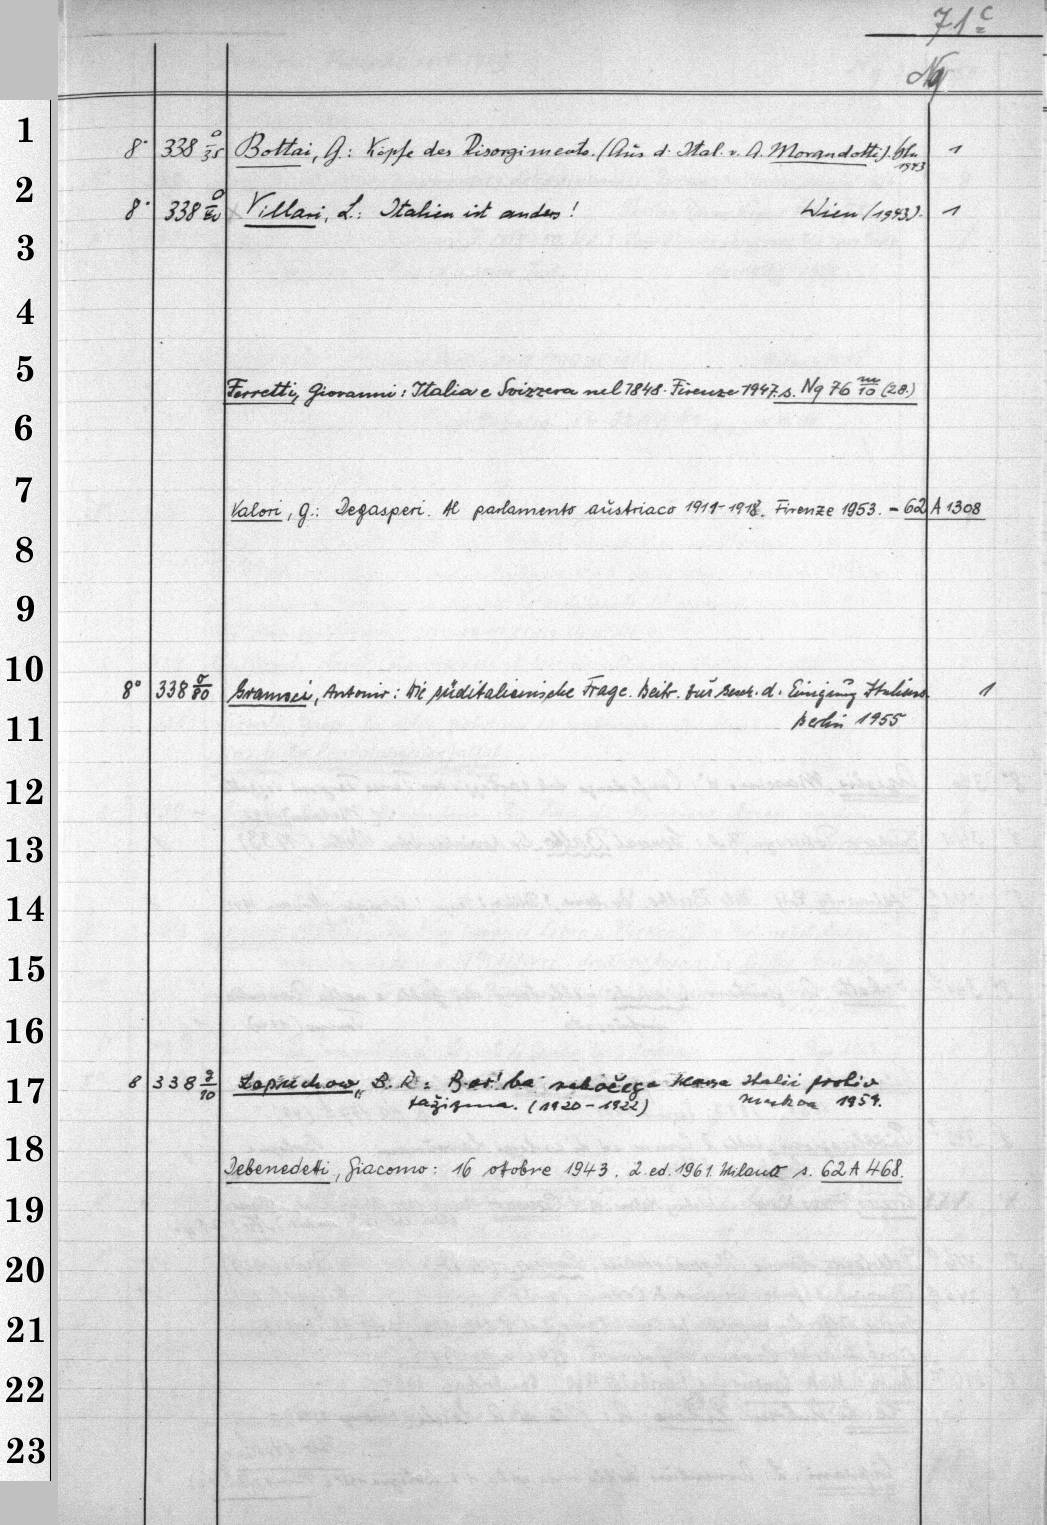 71c
Nq
1
8° 338 o/35 Bottai, G.: Köpfe des Risorgimento. (Aus d. Ital. v. A. Morandotti). Bln 1943 1
2
8° 338 o/ Villari, L.: Italien ist anders! Wien (1943). 1
3
4
5
Ferretti, Giovanni: Italia e Svizzera nel 1848. Firenze 1947. s. Nq 76 m/10 (28.)
6
7
Valori, G.: Degasperi. Al parlamento austriaco 1911-1918. Firenze 1953. - 62 A 1308
8
9
10
8° 338 o/80 Gramsci, Antonio: Die süditalienische Frage. Beitr. zur Gesch. d. Einigung Italiens. 1
11
Berlin 1955
12
13
14
15
16
17
8 338 /10 B. R.: Bor'ba rabočego klassa Italii protiv
fašizma. (1920-1922) Moskva 1959.
18
Debenedetti, Giacomo: 16 ottobre 1943. 2. ed. 1961. Milano s. 62 A 468.
19
20
21
22
23